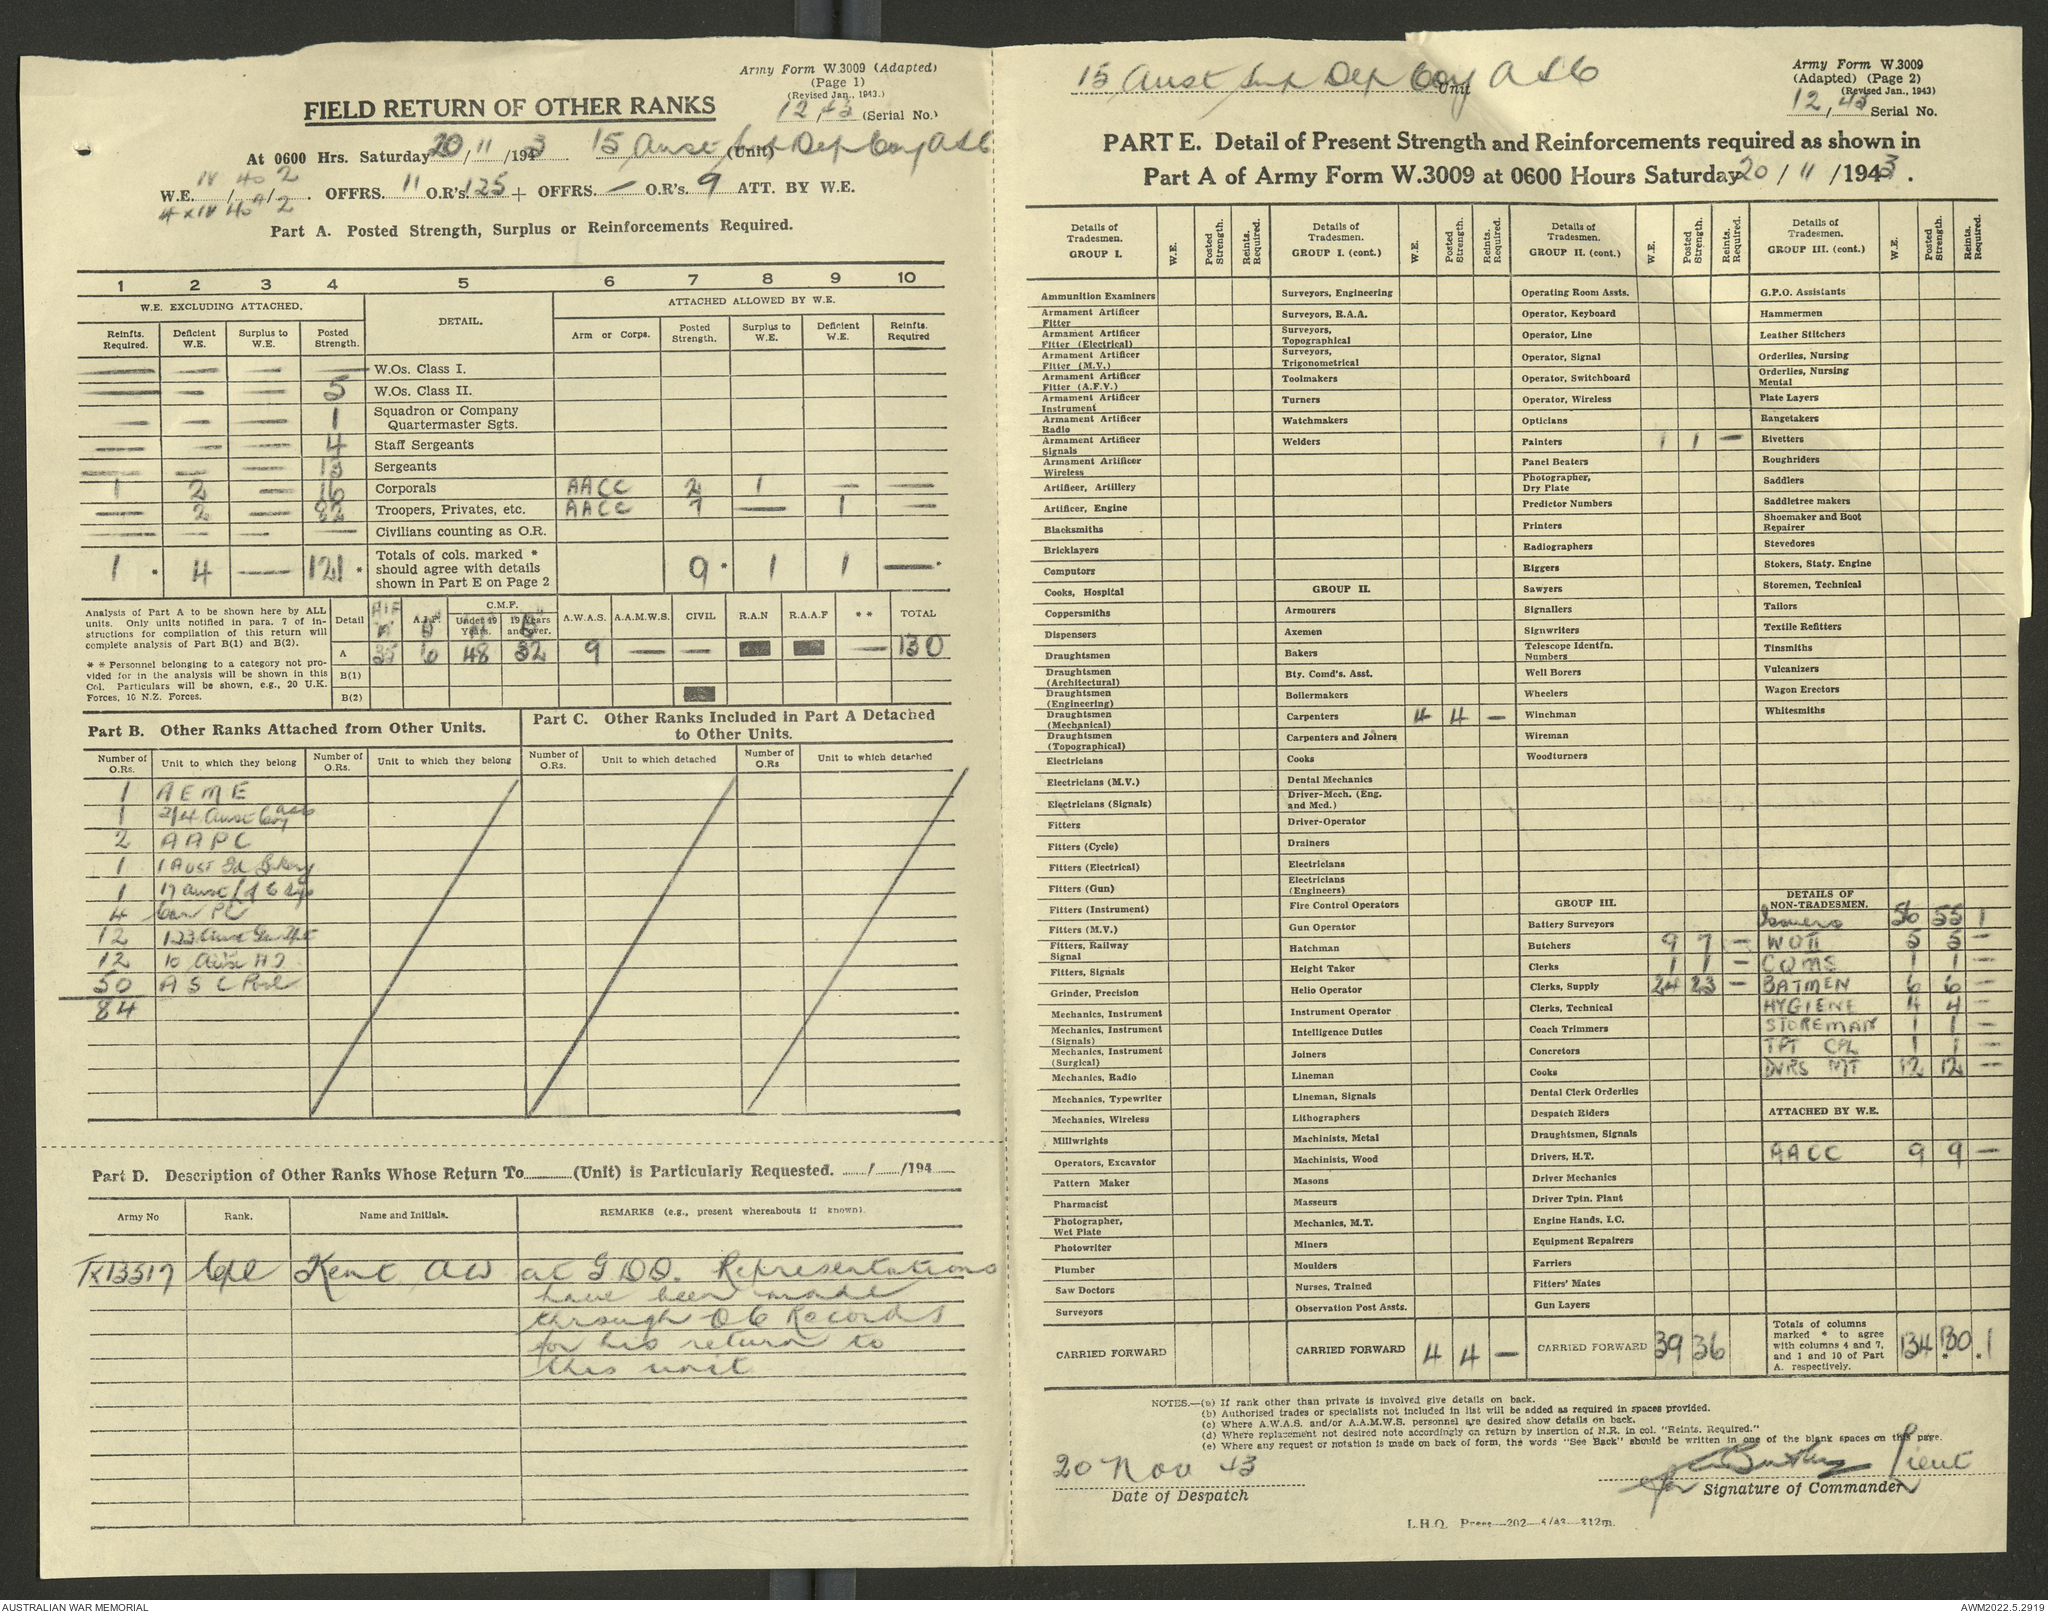 Army Form W.3009 (Adapted)
(Page 1)
(Revised Jan., 1943.)
12, 43 (Serial No.)
FIELD RETURN OF OTHER RANKS
At 0600 Hrs. Saturday 20/11/1943 15 Aust Sup Dep Coy ASC (Unit)
IV 40 2
W.E. / / . OFFRS. 11 O.R's. 125 + OFFRS. — O.R's. 9 ATT. BY W.E.
4 x IV 40A 2
Part A. Posted Strength, Surplus or Reinforcements Required.
1 2 3 4 5 6 7 8 9 10
W.E. EXCLUDING ATTACHED. DETAIL. ATTACHED ALLOWED BY W.E.
Reinfts. Required. Deficient W.E. Surplus to W.E. Posted Strength. Arm or Corps. Posted Strength. Surplus to W.E. Deficient W.E. Reinfts. Required
— — — — W.Os. Class I.
— — — 5 W.Os. Class II.
— — — 1 Squadron or Company Quartermaster Sgts.
— — — 4 Staff Sergeants
— — — 13 Sergeants
1 2 — 16 Corporals AACC 2 1 — —
— 2 — 82 Troopers, Privates, etc. AACC 7 — 1 —
— — — — Civilians counting as O.R.
1 * 4 — 121 * Totals of cols. marked * should agree with details shown in Part E on Page 2 9 * 1 1 — *
Analysis of Part A to be shown here by ALL units. Only units notified in para. 7 of instructions for compilation of this return will complete analysis of Part B(1) and B(2).
* * Personnel belonging to a category not provided for in the analysis will be shown in this Col. Particulars will be shown, e.g., 20 U.K. Forces, 10 N.Z. Forces.
Detail AIF "A" A.I.F. "B" C.M.F. Under 19 Years. "A" 19 Years and over. "B" A.W.A.S. A.A.M.W.S. CIVIL R.A.N R.A.A.F * * TOTAL
A 35 6 48 32 9 — — — 130
B(1)
B(2)
Part B. Other Ranks Attached from Other Units.
Part C. Other Ranks Included in Part A Detached to Other Units.
Number of O.Rs. Unit to which they belong Number of O.Rs. Unit to which they belong Number of O.Rs. Unit to which detached Number of O.Rs Unit to which detached
1 A E M E
1 2/4 Aust Coy
2 A A P C
1 1 Aust Fd Bakery
1 17 Aust
4 PC
12 123 Aust Gen Tpt
12 10 Aust
50 A S C Pool
84
Part D. Description of Other Ranks Whose Return To (Unit) is Particularly Requested. / /194
Army No Rank. Name and Initials. REMARKS (e.g., present whereabouts if known).
TX13517 Cpl Kent AW at GDD. Representations
have been made
through OC Records
for his return to
this unit
15 Aust Sup Dep Coy ASC
Unit
Army Form W.3009
(Adapted) (Page 2)
(Revised Jan., 1943)
12, 43 Serial No.
PART E. Detail of Present Strength and Reinforcements required as shown in
Part A of Army Form W.3009 at 0600 Hours Saturday 20/11/1943.
Details of Tradesmen. GROUP I. W.E. Posted Strength. Reints. Required.
Ammunition Examiners
Armament Artificer Fitter
Armament Artificer Fitter (Electrical)
Armament Artificer Fitter (M.V.)
Armament Artificer Fitter (A.F.V.)
Armament Artificer Instrument
Armament Artificer Radio
Armament Artificer Signals
Armament Artificer Wireless
Artificer, Artillery
Artificer, Engine
Blacksmiths
Bricklayers
Computors
Cooks, Hospital
Coppersmiths
Dispensers
Draughtsmen
Draughtsmen (Architectural)
Draughtsmen (Engineering)
Draughtsmen (Mechanical)
Draughtsmen (Topographical)
Electricians
Electricians (M.V.)
Electricians (Signals)
Fitters
Fitters (Cycle)
Fitters (Electrical)
Fitters (Gun)
Fitters (Instrument)
Fitters (M.V.)
Fitters, Railway Signal
Fitters, Signals
Grinder, Precision
Mechanics, Instrument
Mechanics, Instrument (Signals)
Mechanics, Instrument (Surgical)
Mechanics, Radio
Mechanics, Typewriter
Mechanics, Wireless
Millwrights
Operators, Excavator
Pattern Maker
Pharmacist
Photographer, Wet Plate
Photowriter
Plumber
Saw Doctors
Surveyors
CARRIED FORWARD
Details of Tradesmen. GROUP I. (cont.) W.E. Posted Strength. Reints. Required.
Surveyors, Engineering
Surveyors, R.A.A.
Surveyors, Topographical
Surveyors, Trigonometrical
Toolmakers
Turners
Watchmakers
Welders
GROUP II.
Armourers
Axemen
Bakers
Bty. Comd's. Asst.
Boilermakers
Carpenters 4 4 —
Carpenters and Joiners
Cooks
Dental Mechanics
Driver-Mech. (Eng. and Med.)
Driver-Operator
Drainers
Electricians
Electricians (Engineers)
Fire Control Operators
Gun Operator
Hatchman
Height Taker
Helio Operator
Instrument Operator
Intelligence Duties
Joiners
Lineman
Lineman, Signals
Lithographers
Machinists, Metal
Machinists, Wood
Masons
Masseurs
Mechanics, M.T.
Miners
Moulders
Nurses, Trained
Observation Post Assts.
CARRIED FORWARD 4 4 —
Details of Tradesmen. GROUP II. (cont.) W.E. Posted Strength. Reints. Required.
Operating Room Assts.
Operator, Keyboard
Operator, Line
Operator, Signal
Operator, Switchboard
Operator, Wireless
Opticians
Painters 1 1 —
Panel Beaters
Photographer, Dry Plate
Predictor Numbers
Printers
Radiographers
Riggers
Sawyers
Signallers
Signwriters
Telescope Identfn. Numbers
Well Borers
Wheelers
Winchman
Wireman
Woodturners
GROUP III.
Battery Surveyors
Butchers 9 7 —
Clerks 1 1 —
Clerks, Supply 24 23 —
Clerks, Technical
Coach Trimmers
Concretors
Cooks
Dental Clerk Orderlies
Despatch Riders
Draughtsmen, Signals
Drivers, H.T.
Driver Mechanics
Driver Tptn. Plant
Engine Hands, I.C.
Equipment Repairers
Farriers
Fitters' Mates
Gun Layers
CARRIED FORWARD 39 36
Details of Tradesmen. GROUP III. (cont.) W.E. Posted Strength. Reints. Required.
G.P.O. Assistants
Hammermen
Leather Stitchers
Orderlies, Nursing
Orderlies, Nursing Mental
Plate Layers
Rangetakers
Rivetters
Roughriders
Saddlers
Saddletree makers
Shoemaker and Boot Repairer
Stevedores
Stokers, Staty. Engine
Storemen, Technical
Tailors
Textile Refitters
Tinsmiths
Vulcanizers
Wagon Erectors
Whitesmiths
DETAILS OF NON-TRADESMEN.
Issuers 56 55 1
WOII 5 5 —
CQMS 1 1 —
BATMEN 6 6 —
HYGIENE 4 4 —
STOREMAN 1 1 —
TPT CPL 1 1 —
DVRS MT 12 12 —
ATTACHED BY W.E.
AACC 9 9 —
Totals of columns marked * to agree with columns 4 and 7, and 1 and 10 of Part A. respectively. 134 130 * 1 *
NOTES.—(a) If rank other than private is involved give details on back.
(b) Authorised trades or specialists not included in list will be added as required in spaces provided.
(c) Where A.W.A.S. and/or A.A.M.W.S. personnel are desired show details on back.
(d) Where replacement not desired note accordingly on return by insertion of N.R. in col. "Reints. Required."
(e) Where any request or notation is made on back of form, the words "See Back" should be written in one of the blank spaces on this page.
20 Nov 43
Date of Despatch
Lieut
for Signature of Commander
L.H.Q. Press—202—5/43—312m.
AUSTRALIAN WAR MEMORIAL
AWM2022.5.2919